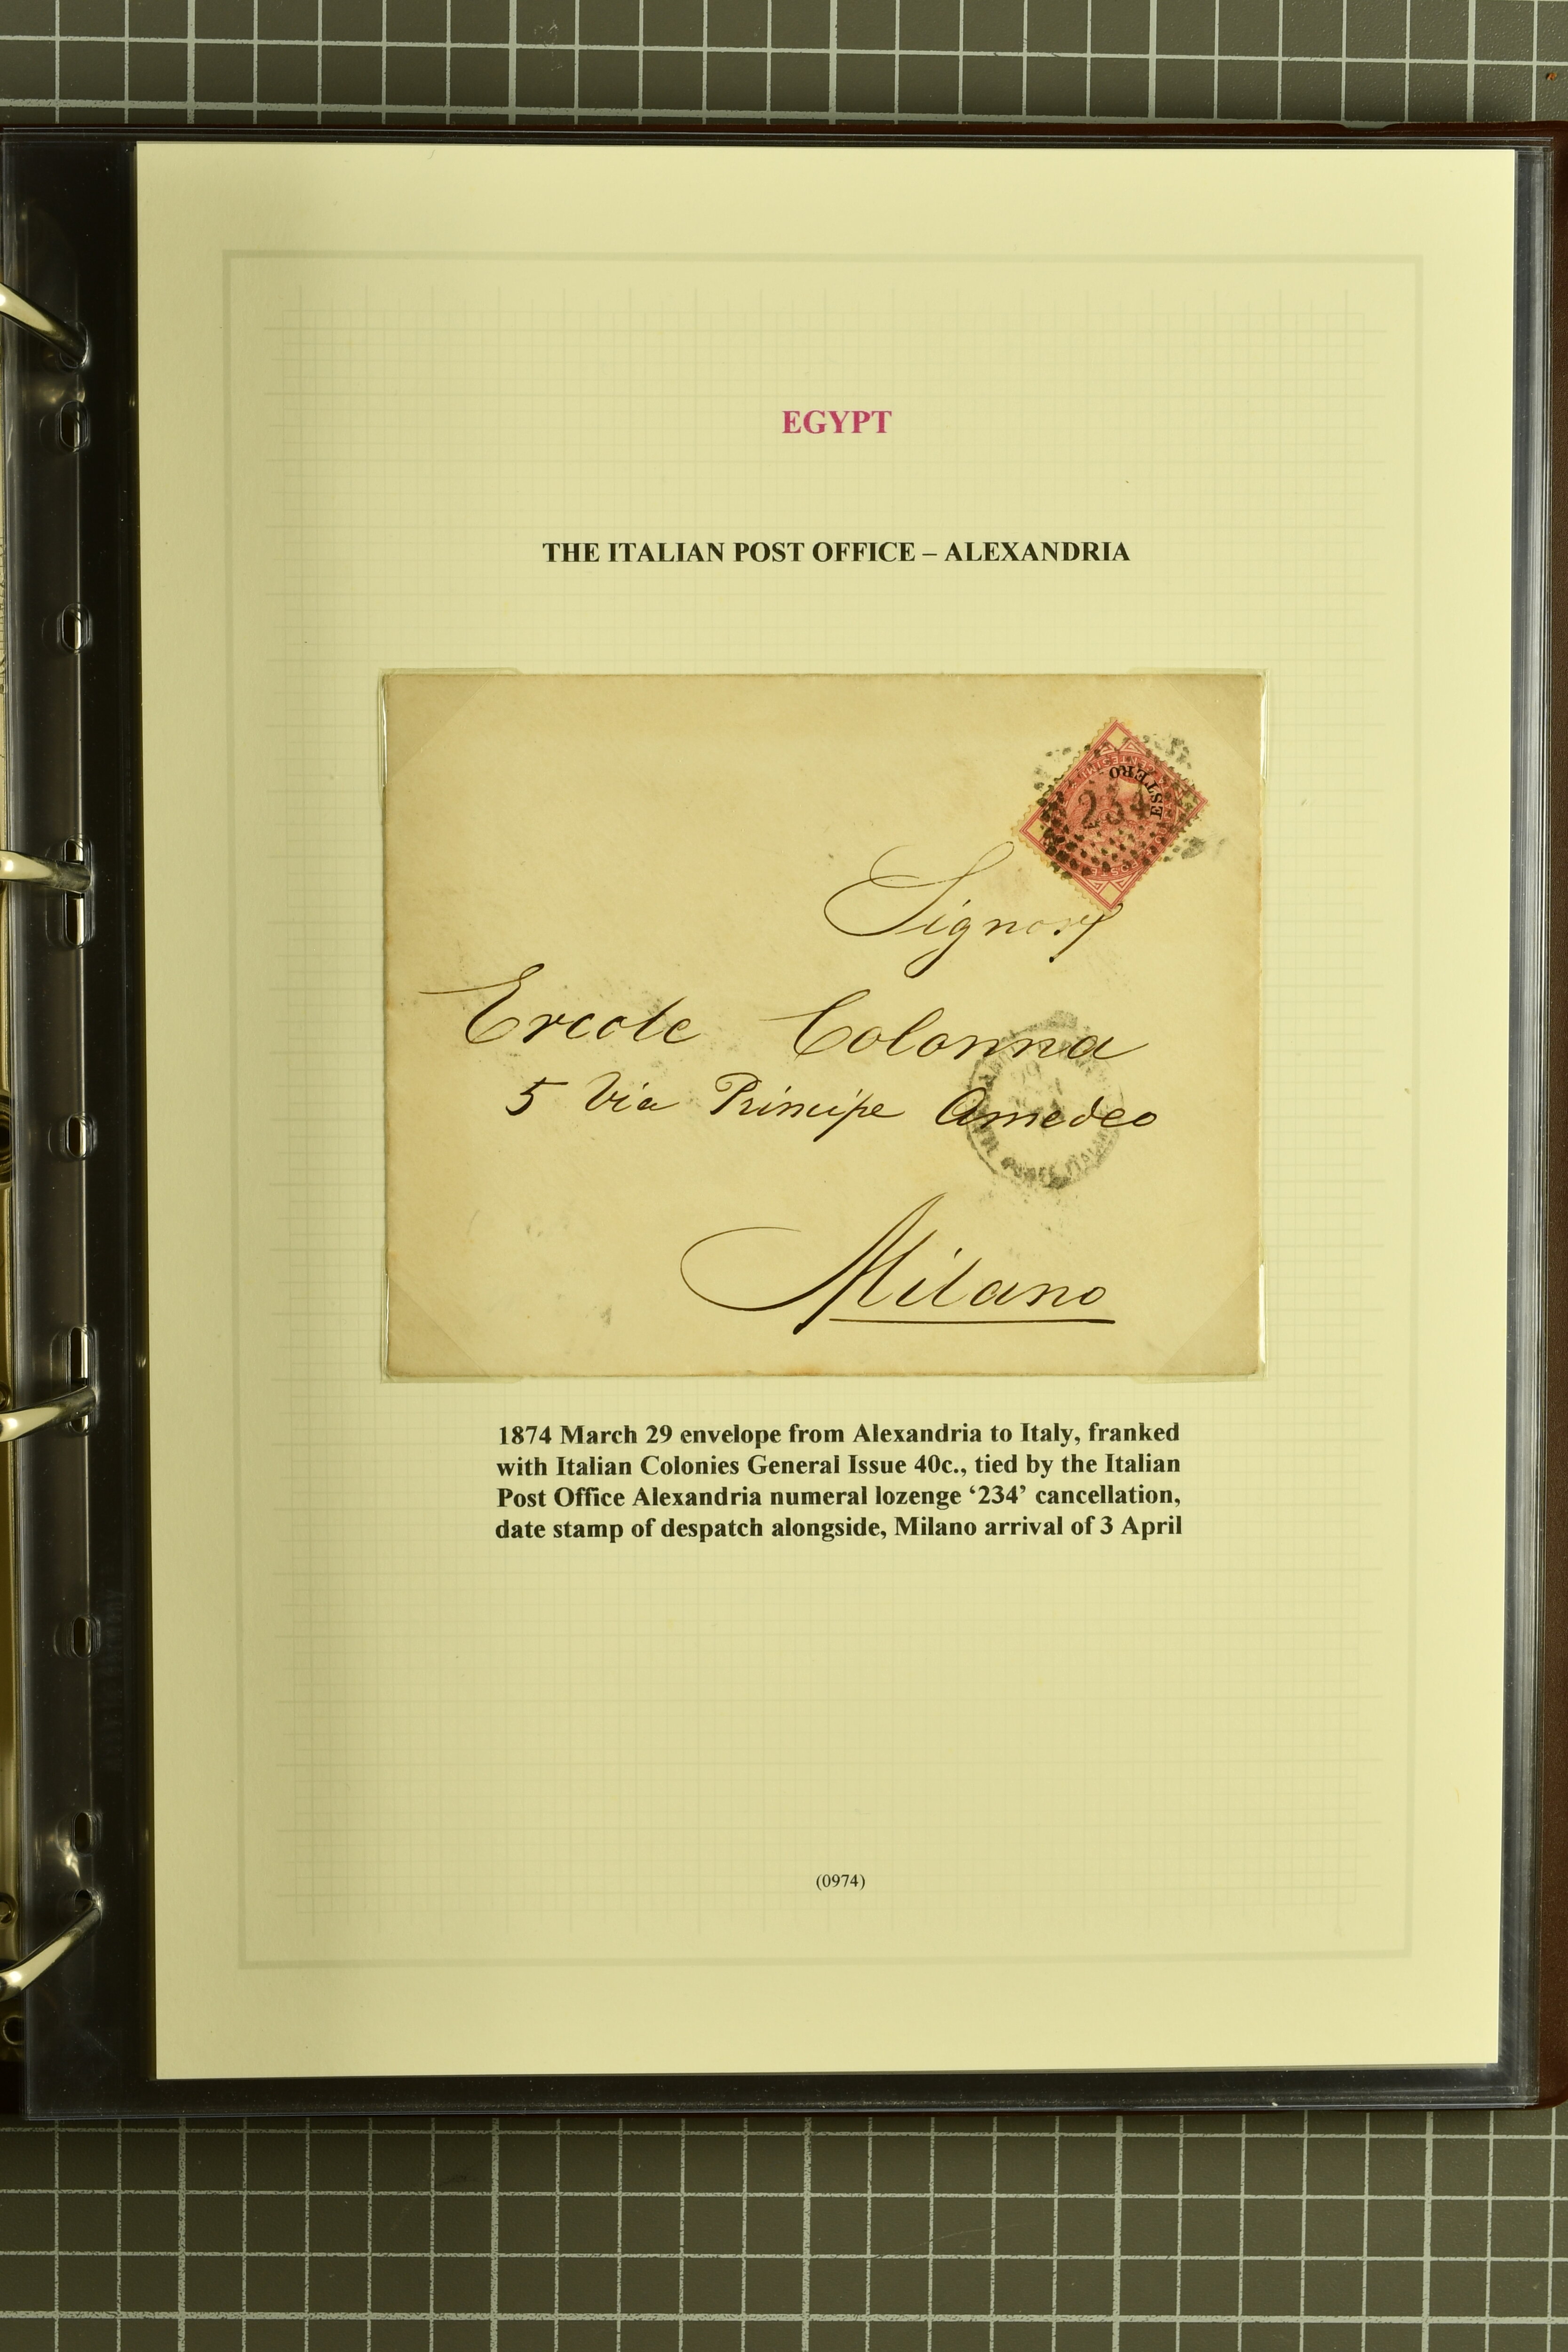 EGYPT
THE ITALIAN POST OFFICE – ALEXANDRIA
ESTERO
234
Signor
Ercole Colonna
5 Via Principe Amedeo
Milano
1874 March 29 envelope from Alexandria to Italy, franked
with Italian Colonies General Issue 40c., tied by the Italian
Post Office Alexandria numeral lozenge ‘234’ cancellation,
date stamp of despatch alongside, Milano arrival of 3 April
(0974)